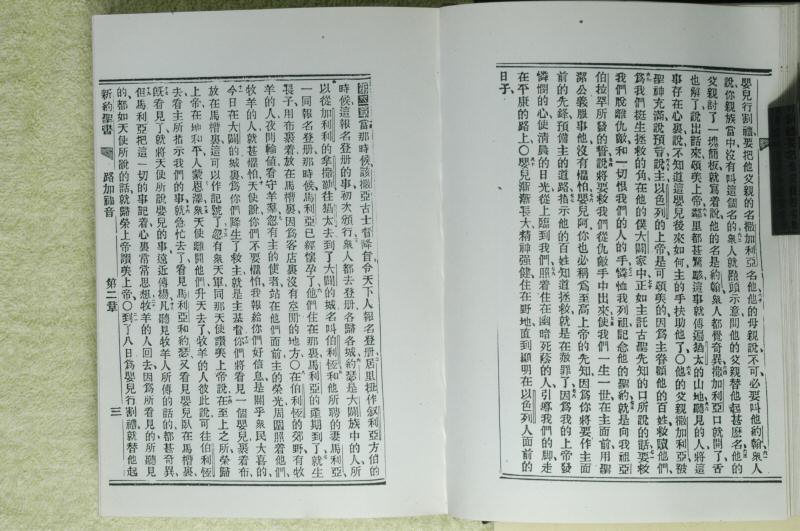 嬰兒行割禮要把他父親的名撒加利亞名他他的母親說不可必要叫他約翰衆人
說你親族當中沒有叫這個名的衆人就點頭示意問他的父親替他起甚麽名他的
父親討了一塊簡板就寫着說他的名是約翰衆人都覺奇異撒加利亞口就開了舌
也解了說出話來頌美上帝鄰里都甚驚駭這事就傳遍猶太的山地聽見的人將這
事存在心裏說不知道這嬰兒後來如何主的手扶助他了〇他的父親撒加利亞被
聖神充滿說預言說主以色列的上帝是可頌美的因爲主眷顧他的百姓救贖他們
爲我們挺生拯救的角在他的僕大闢家中正如主託古聖先知的口所說的話要救
我們脫離仇敵和一切恨我們的人的手憐恤我列祖記念他的聖約就是向我祖亞
伯拉罕所發的誓說將要救我們從仇敵手中出來使我們一生一世在主面前用聖
潔公義服事他沒有懼怕嬰兒阿你也必稱爲至高上帝的先知因爲你將要作主面
前的先鋒預備主的道路指示他的百姓知道拯救就是在赦罪了因爲我的上帝發
憐憫的心使清晨的日光從上臨到我們照着住在幽暗死蔭的人引導我們的脚走
在平康的路上〇嬰兒漸漸長大精神强健住在野地直到顯明在以色列人面前的
日子
當那時候該撒亞古士督降旨令天下人報名登册居里扭作叙利亞方伯的
時候這報名登册的事初次頒行衆人都去登册各歸各城約瑟是大闢族中的人所
以從加利利的拿撒勒往猶太去到了大闢的城名叫伯利恒和他所聘的妻馬利亞
一同報名登册那時候馬利亞已經懷孕了他們住在那裏馬利亞的產期到了就生
長子用布裹着放在馬槽裏因爲客店裏沒有空閒的地方〇在伯利恒的郊野有牧
羊的人夜間輪値看守羊羣忽有主的使者站在他們面前主的榮光周圍照着他們
牧羊的人就甚懼怕天使說你們不要懼怕我報給你們好信息是關乎衆民大喜的
今日在大闢的城裏爲你們降生了救主就是主基督你們將看見一個嬰兒裹着布
放在馬槽裏這可以作記號了忽有衆天軍同那天使讚美上帝說在至上之所榮歸
上帝在地和平人蒙恩澤衆天使離開他們升天去了牧羊的人彼此說可往伯利恒
去看主所指示我們的事就急忙去了看見馬利亞和約瑟又看見嬰兒臥在馬槽裏
旣看見了就將天使所說嬰兒的事遠近傳揚凡聽見牧羊人所傳的話的都甚奇異
但馬利亞把這一切的事記着心裏常常思想牧羊的人回去因爲所看見的所聽見
的都如天使所說的話就歸榮上帝讚美上帝〇到了八日爲嬰兒行割禮就替他起
新約聖書 路加福音 第二章 三